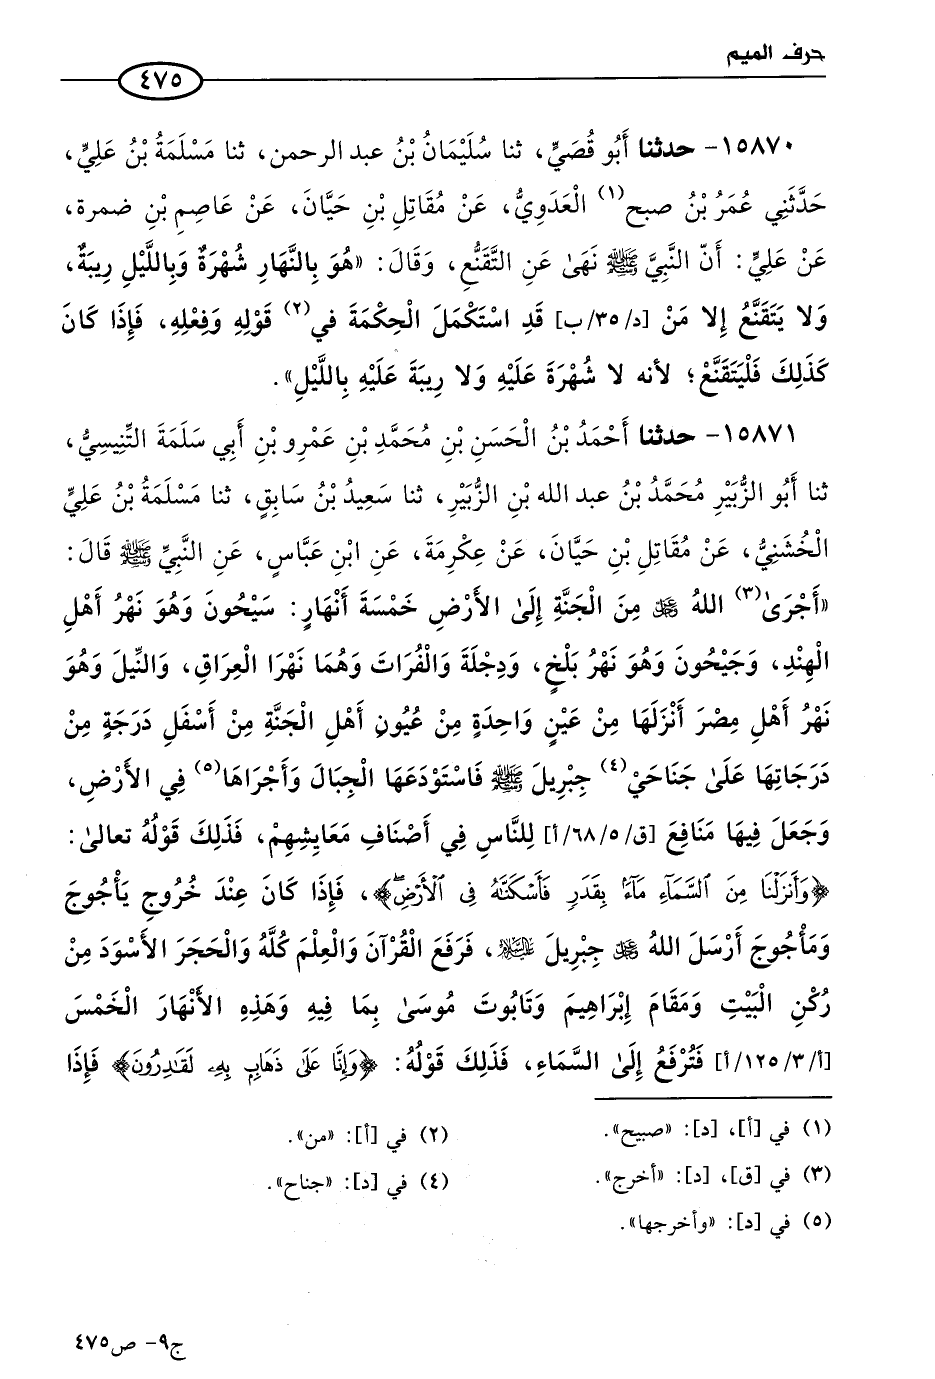 حرف الميم
٤٧٥
١٥٨٧٠- حدثنا أَبُو قُصَيٍّ، ثنا سُلَيْمَانُ بْنُ عبد الرحمن، ثنا مَسْلَمَةُ بْنُ عَلِيٍّ،
حَدَّثَنِي عُمَرُ بْنُ صبح(١) الْعَدَوِيُّ، عَنْ مُقَاتِلِ بْنِ حَيَّانَ، عَنْ عَاصِمِ بْنِ ضمرة،
عَنْ عَلِيٍّ: أَنّ النَّبِيَّ ﷺ نَهَىٰ عَنِ التَّقَنُّعِ، وَقَالَ: «هُوَ بِالنَّهَارِ شُهْرَةٌ وَبِاللَّيْلِ رِيبَةٌ،
وَلا يَتَقَنَّعُ إِلا مَنْ [د/٣٥/ب] قَدِ اسْتَكْمَلَ الْحِكْمَةَ في(٢) قَوْلِهِ وَفِعْلِهِ، فَإِذَا كَانَ
كَذَلِكَ فَلْيَتَقَنَّعْ؛ لأنه لا شُهْرَةَ عَلَيْهِ وَلا رِيبَةَ عَلَيْهِ بِاللَّيْلِ».
١٥٨٧١- حدثنا أَحْمَدُ بْنُ الْحَسَنِ بْنِ مُحَمَّدِ بْنِ عَمْرِو بْنِ أَبِي سَلَمَةَ التِّنِيسِيُّ،
ثنا أَبُو الزُّبَيْرِ مُحَمَّدُ بْنُ عبد الله بْنِ الزُّبَيْرِ، ثنا سَعِيدُ بْنُ سَابِقٍ، ثنا مَسْلَمَةُ بْنُ عَلِيٍّ
الْخُشَنِيُّ، عَنْ مُقَاتِلِ بْنِ حَيَّانَ، عَنْ عِكْرِمَةَ، عَنِ ابْنِ عَبَّاسٍ، عَنِ النَّبِيِّ ﷺ قَالَ:
«أَجْرَىٰ(٣) اللهُ ﷻ مِنَ الْجَنَّةِ إِلَىٰ الأَرْضِ خَمْسَةَ أَنْهَارٍ: سَيْحُونَ وَهُوَ نَهْرُ أَهْلِ
الْهِنْدِ، وَجَيْحُونَ وَهُوَ نَهْرُ بَلْخٍ، وَدِجْلَةَ وَالْفُرَاتَ وَهُمَا نَهْرَا الْعِرَاقِ، وَالنِّيلَ وَهُوَ
نَهْرُ أَهْلِ مِصْرَ أَنْزَلَهَا مِنْ عَيْنٍ وَاحِدَةٍ مِنْ عُيُونِ أَهْلِ الْجَنَّةِ مِنْ أَسْفَلِ دَرَجَةٍ مِنْ
دَرَجَاتِهَا عَلَىٰ جَنَاحَيْ(٤) جِبْرِيلَ ﷺ فَاسْتَوْدَعَهَا الْجِبَالَ وَأَجْرَاهَا(٥) فِي الأَرْضِ،
وَجَعَلَ فِيهَا مَنَافِعَ [ق/٦٨/٥/أ] لِلنَّاسِ فِي أَصْنَافِ مَعَايِشِهِمْ، فَذَلِكَ قَوْلُهُ تعالىٰ:
﴿وَأَنزَلْنَا مِنَ ٱلسَّمَآءِ مَآءًۢ بِقَدَرٍ فَأَسْكَنَّٰهُ فِى ٱلْأَرْضِۖ﴾، فَإِذَا كَانَ عِنْدَ خُرُوجِ يَأْجُوجَ
وَمَأْجُوجَ أَرْسَلَ اللهُ ﷻ جِبْرِيلَ عليه السلام، فَرَفَعَ الْقُرْآنَ وَالْعِلْمَ كُلَّهُ وَالْحَجَرَ الأَسْوَدَ مِنْ
رُكْنِ الْبَيْتِ وَمَقَامَ إِبْرَاهِيمَ وَتَابُوتَ مُوسَىٰ بِمَا فِيهِ وَهَذِهِ الأَنْهَارَ الْخَمْسَ
[أ/١٢٥/٣/أ] فَتُرْفَعُ إِلَىٰ السَّمَاءِ، فَذَلِكَ قَوْلُهُ: ﴿وَإِنَّا عَلَىٰ ذَهَابٍۭ بِهِۦ لَقَٰدِرُونَ﴾ فَإِذَا
(١) في [أ]، [د]: «صبيح».
(٢) في [أ]: «من».
(٣) في [ق]، [د]: «أخرج».
(٤) في [د]: «جناح».
(٥) في [د]: «وأخرجها».
ج٩- ص٤٧٥